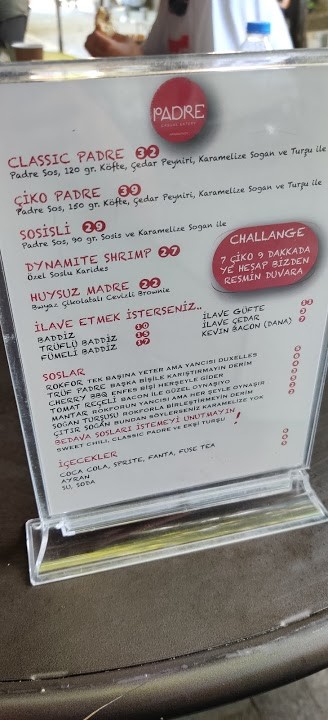 PADRE
CLASSIC PADRE 32
Padre Sos, 120 gr. Köfte, Çedar Peyniri, Karamelize Sogan ve Turşu ile
ÇİKO PADRE 39
Padre Sos, 150 gr. Köfte, Çedar Peyniri, Karamelize Sogan ve Turşu ile
SOSİSLİ 29
Padre Sos, 90 gr. Sosis ve Karamelize Sogan ile
DYNAMITE SHRIMP 27
Özel Soslu Karides
HUYSUZ MADRE 22
Beyaz Çikolatalı Cevizli Brownie
CHALLANGE
7 ÇİKO 9 DAKKADA
YE HESAP BİZDEN
RESMİN DUVARA
İLAVE ETMEK İSTERSENİZ..
BADDİZ 10
TRÜFLÜ BADDİZ 15
FÜMELİ BADDİZ 17
İLAVE GÜFTE
İLAVE ÇEDAR
KEVIN BACON (DANA)
SOSLAR
ROKFOR TEK BAŞINA YETER AMA YANCISI DUXELLES
TRÜF PADRE BAŞKA BİŞİLE KARIŞTIRMAYIN DERİM
CHERRY BBQ ENFES BİŞİ HERŞEYLE GİDER
TOMAT REÇELİ BACON İLE GÜZEL OYNAŞIYO
MANTAR ROKFORUN YANCISI AMA HER ŞEYLE OYNAŞIR
SOĞAN TURŞUSU ROKFORLA BİRLEŞTİRMEYİN DERİM
ÇITIR SOĞAN BUNDAN SÖYLERSENİZ KARAMELİZE YOK
BEDAVA SOSLARI İSTEMEYİ UNUTMAYIN !
SWEET CHILI, CLASSIC PADRE VE EKŞİ TURŞU
İÇECEKLER
COCA COLA, SPRITE, FANTA, FUSE TEA
AYRAN
SU, SODA